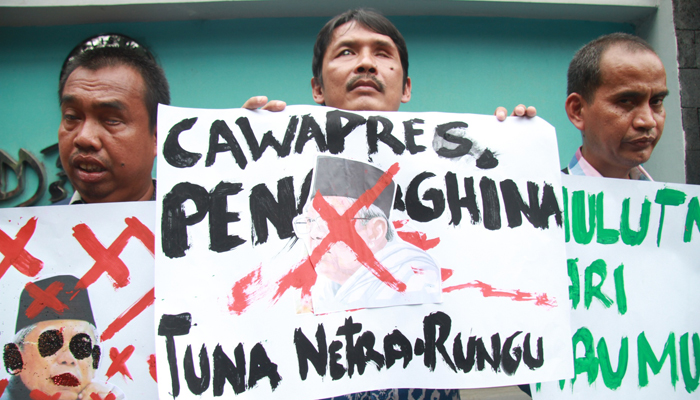 CAWAPRES,
PEN GHINA
TUNA NETRA-RUNGU
ULUT
ARI
AUMU